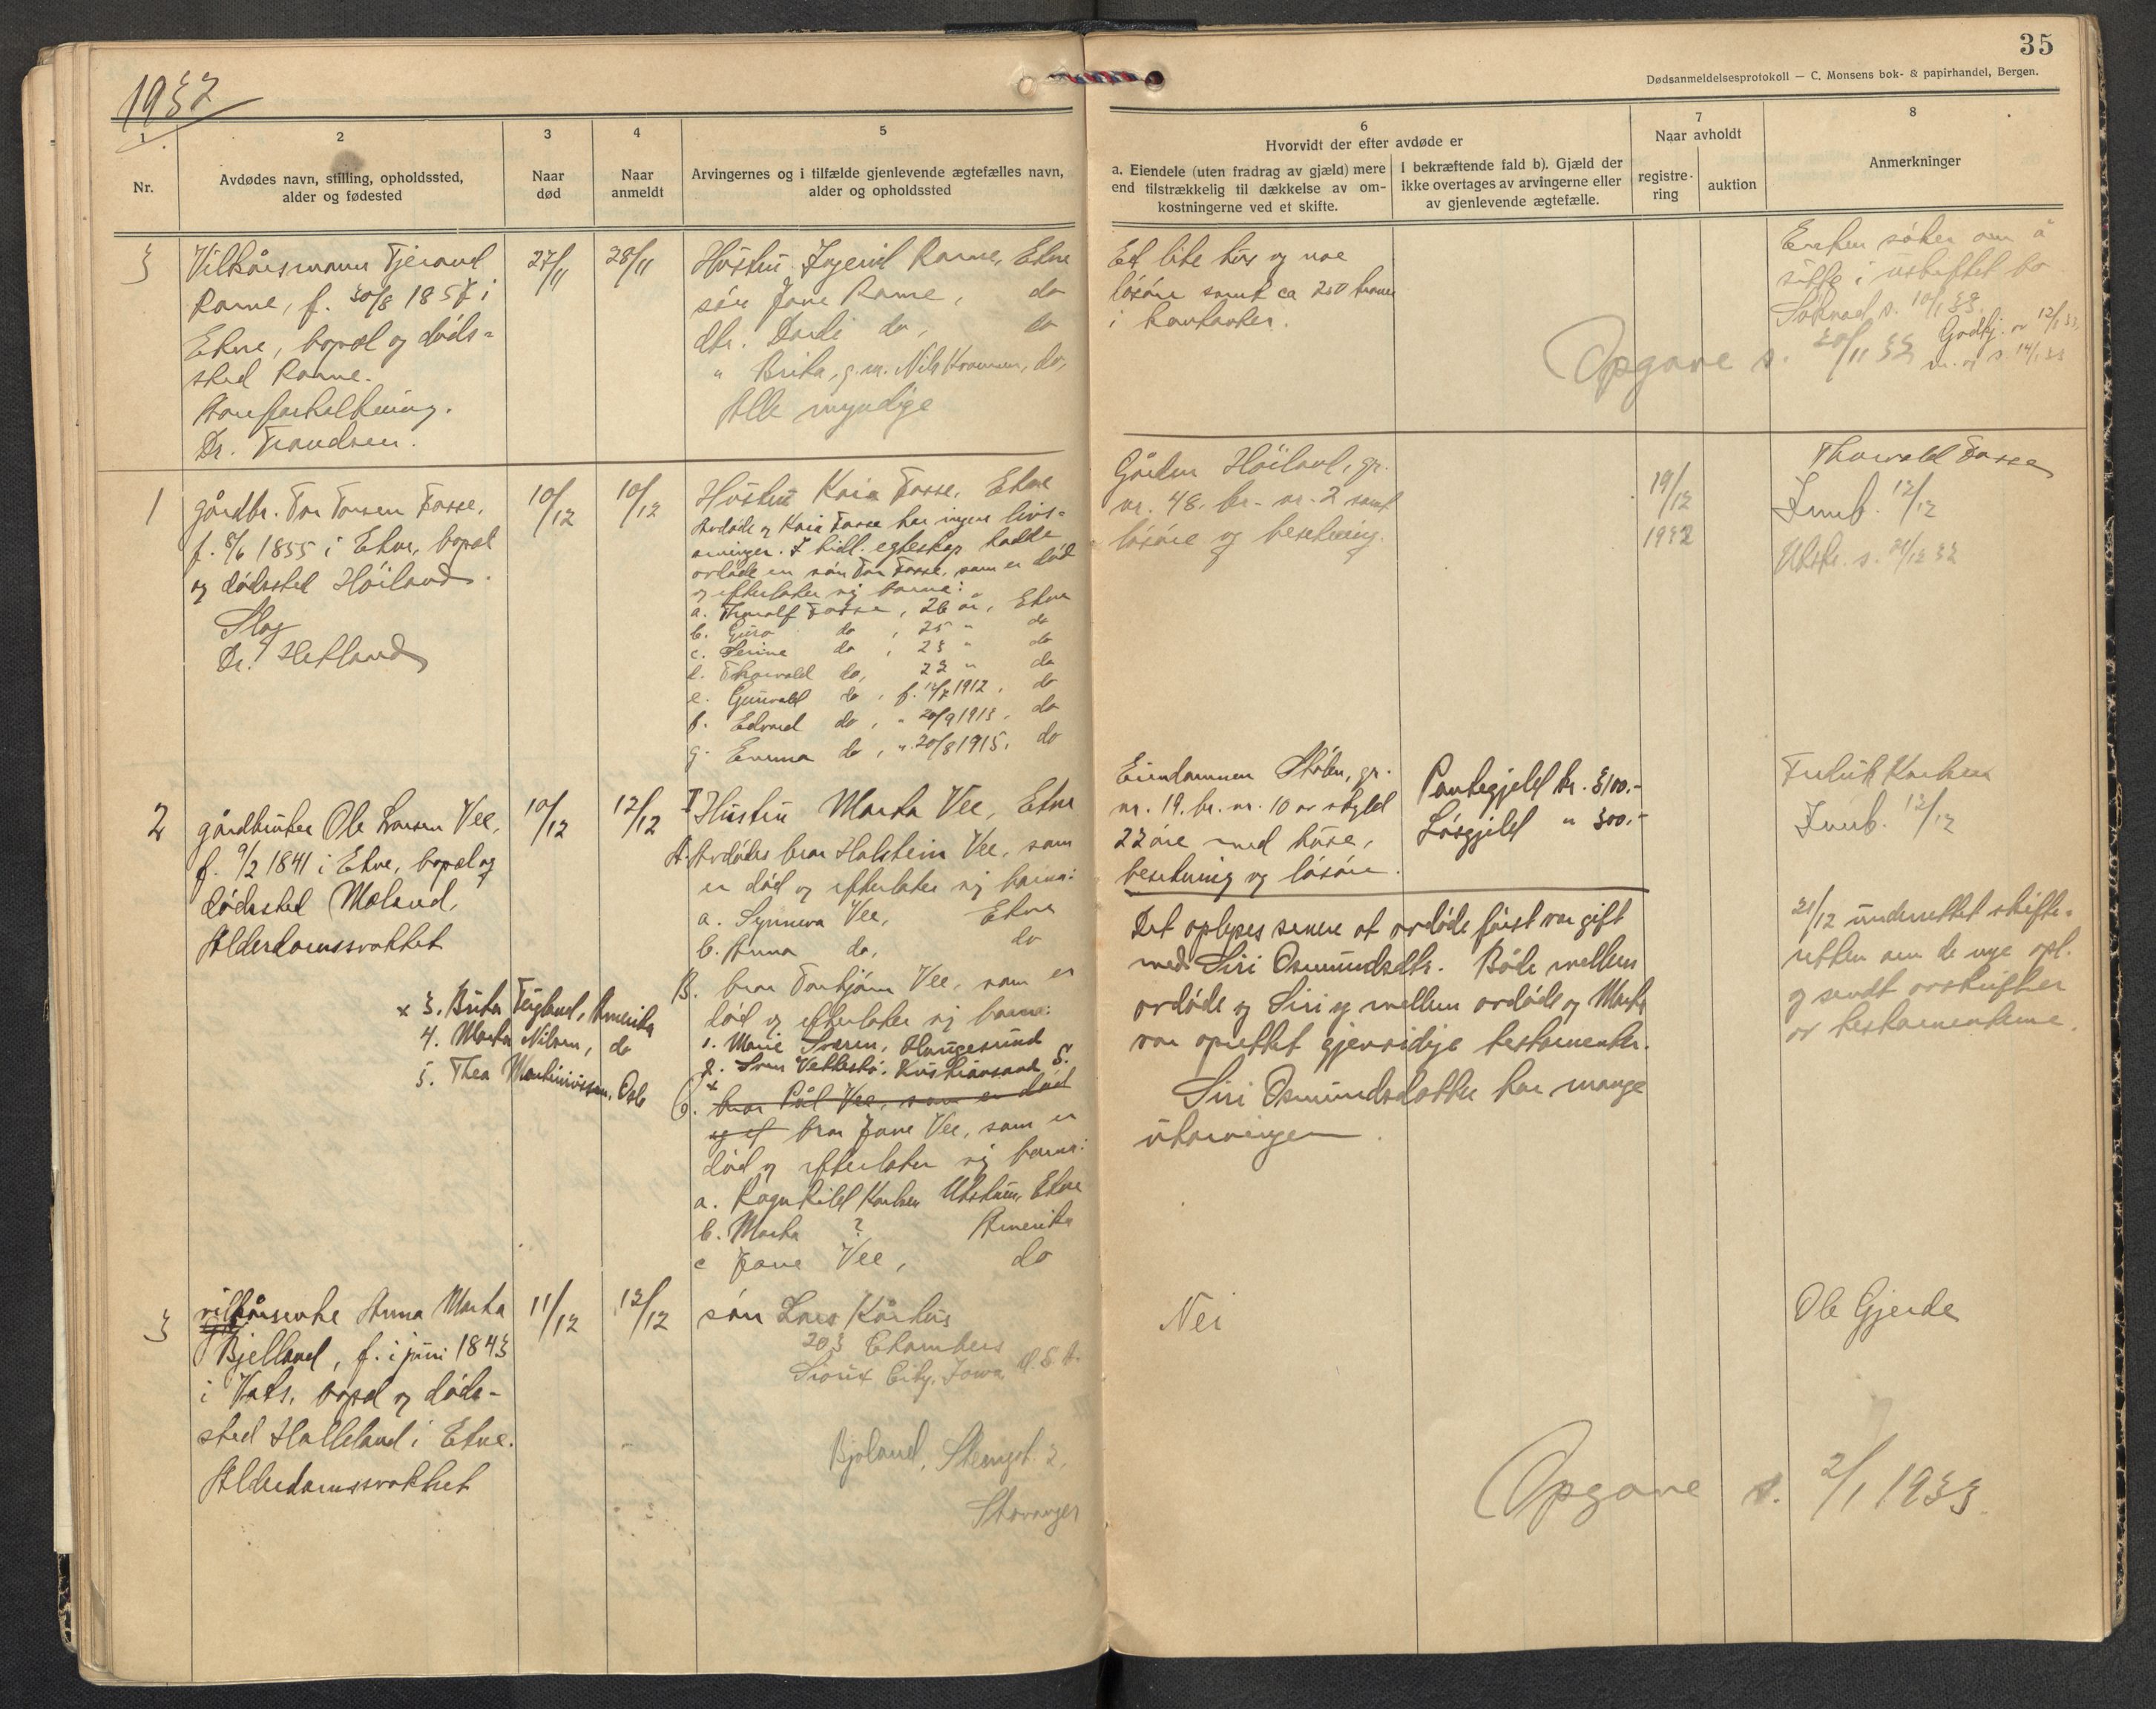 1932
35
Dødsanmeldelsesprotokoll — C. Monsens bok- & papirhandel, Bergen.
1
Nr.
2
Avdødes navn, stilling, opholdssted,
alder og fødested
3
Naar
død
4
Naar
anmeldt
5
Arvingernes og i tilfælde gjenlevende ægtefælles navn,
alder og opholdssted
6
Hvorvidt der efter avdøde er
a. Eiendele (uten fradrag av gjæld) mere
end tilstrækkelig til dækkelse av om-
kostningerne ved et skifte.
I bekræftende fald b). Gjæld der
ikke overtages av arvingerne eller
av gjenlevende ægtefælle.
7
Naar avholdt
registre-
ring
auktion
8
Anmerkninger
3
Vilkårsmann Tjerand
Rame, f. 30/8 1857 i
Etne, bopæl og døds-
sted Rame.
Dr. Frandsen.
27/11
28/11
Hustru Ingerid Rame, Etne
søn Jone Rame, do
dtr. Dorte do, do
" Brita, g.m. Nils, do,
Alle myndige
Et lite hus og noe
løsøre samt ca 250 kroner
i kontanter.
Enken søker om å
sitte i uskiftet bo
Søknad s. 10/1 33.
Godkj. 12/1 33,
s. 14/1 33
Opgave s. 30/11 32
1
gårdbr. Tor Torsen Fosse,
f. 8/6 1855 i Etne, bopæl
og dødssted Höiland.
Slag
Dr. Hetland
10/12
10/12
Hustru Kaia Fosse, Etne
Avdøde og Kaia Fosse har ingen livs-
arvinger. I tidl. egteskap hadde
avdøde en søn Tor Fosse, som er død
og efterlater sig barna:
a. Thoralf Fosse, 26 år, Etne
b. Guro do, 25 " do
c. Serine do, 23 " do
d. Thorvald do, 22 " do
e. Gunvald do, f. 12/7 1912, do
f. Edvard do, " 20/9 1913, do
g. Emma do, " 20/8 1915, do
Gården Höiland, gr.
nr. 48, br.-nr. 2 samt
løsøre og besetning.
19/12
1932
Thorvald Fosse
Innb. 12/12
Utskr. s. 21/12 32
2
gårdbruker Ole Larsen Vee,
f. 9/2 1841 i Etne, bopæl og
dødssted Moland,
Alderdomssvakhet
10/12
12/12
I Hustru Marta Vee, Etne
A. Avdødes bror Halstein Vee, som
er død og efterlater sig barna:
a. Synneva Vee, Etne
b. Anna do, do
B. bror Torbjørn Vee, som er
død og efterlater sig barna:
1. Marie Sværen, Haugesund
2. Sven Vetleskø, Kristiansand S.
x 3. Brita Teigland, Amerika
4. Marta Nilsen, do
5. Thea Martiniussen, Oslo
C. bror Pål Vee, som er død
og ef bror Jone Vee, som er
død og efterlater sig barna:
a. Ragnhild Karlsen Utstuen, Etne
b. Marta ? Amerika
c Jone Vee, do
Eiendommen Stølen, gr.
nr. 19, br. nr. 10 av skyld
22 øre med huse,
besetning og løsøre.
Pantegjeld kr. 3100.-
Løsgjeld " 300.-
Det oplyses senere at avdøde først var gift
med Siri Osmundsdtr. Både mellem
avdøde og Siri og mellem avdøde og Marta
var oprettet gjensidige testamenter.
Siri Osmundsdatter har mange
utarvinger.
Fredrik Karlsen
Innb. 12/12
21/12 underrettet skifte-
retten om de nye opl.
og sendt avskrifter
av testamentene.
3
vilkårsenke Anna Marta
Bjelland, f. i juni 1843
i Vats, bopæl og døds-
sted Halleland i Etne.
Alderdomssvakhet
11/12
12/12
søn Lars Kårhus
203 Chambers
Sioux City, Iowa, U.S.A.
Bjoland, Stengt. 2,
Stavanger
Nei
Ole Gjerde
Opgave s. 2/1 1933